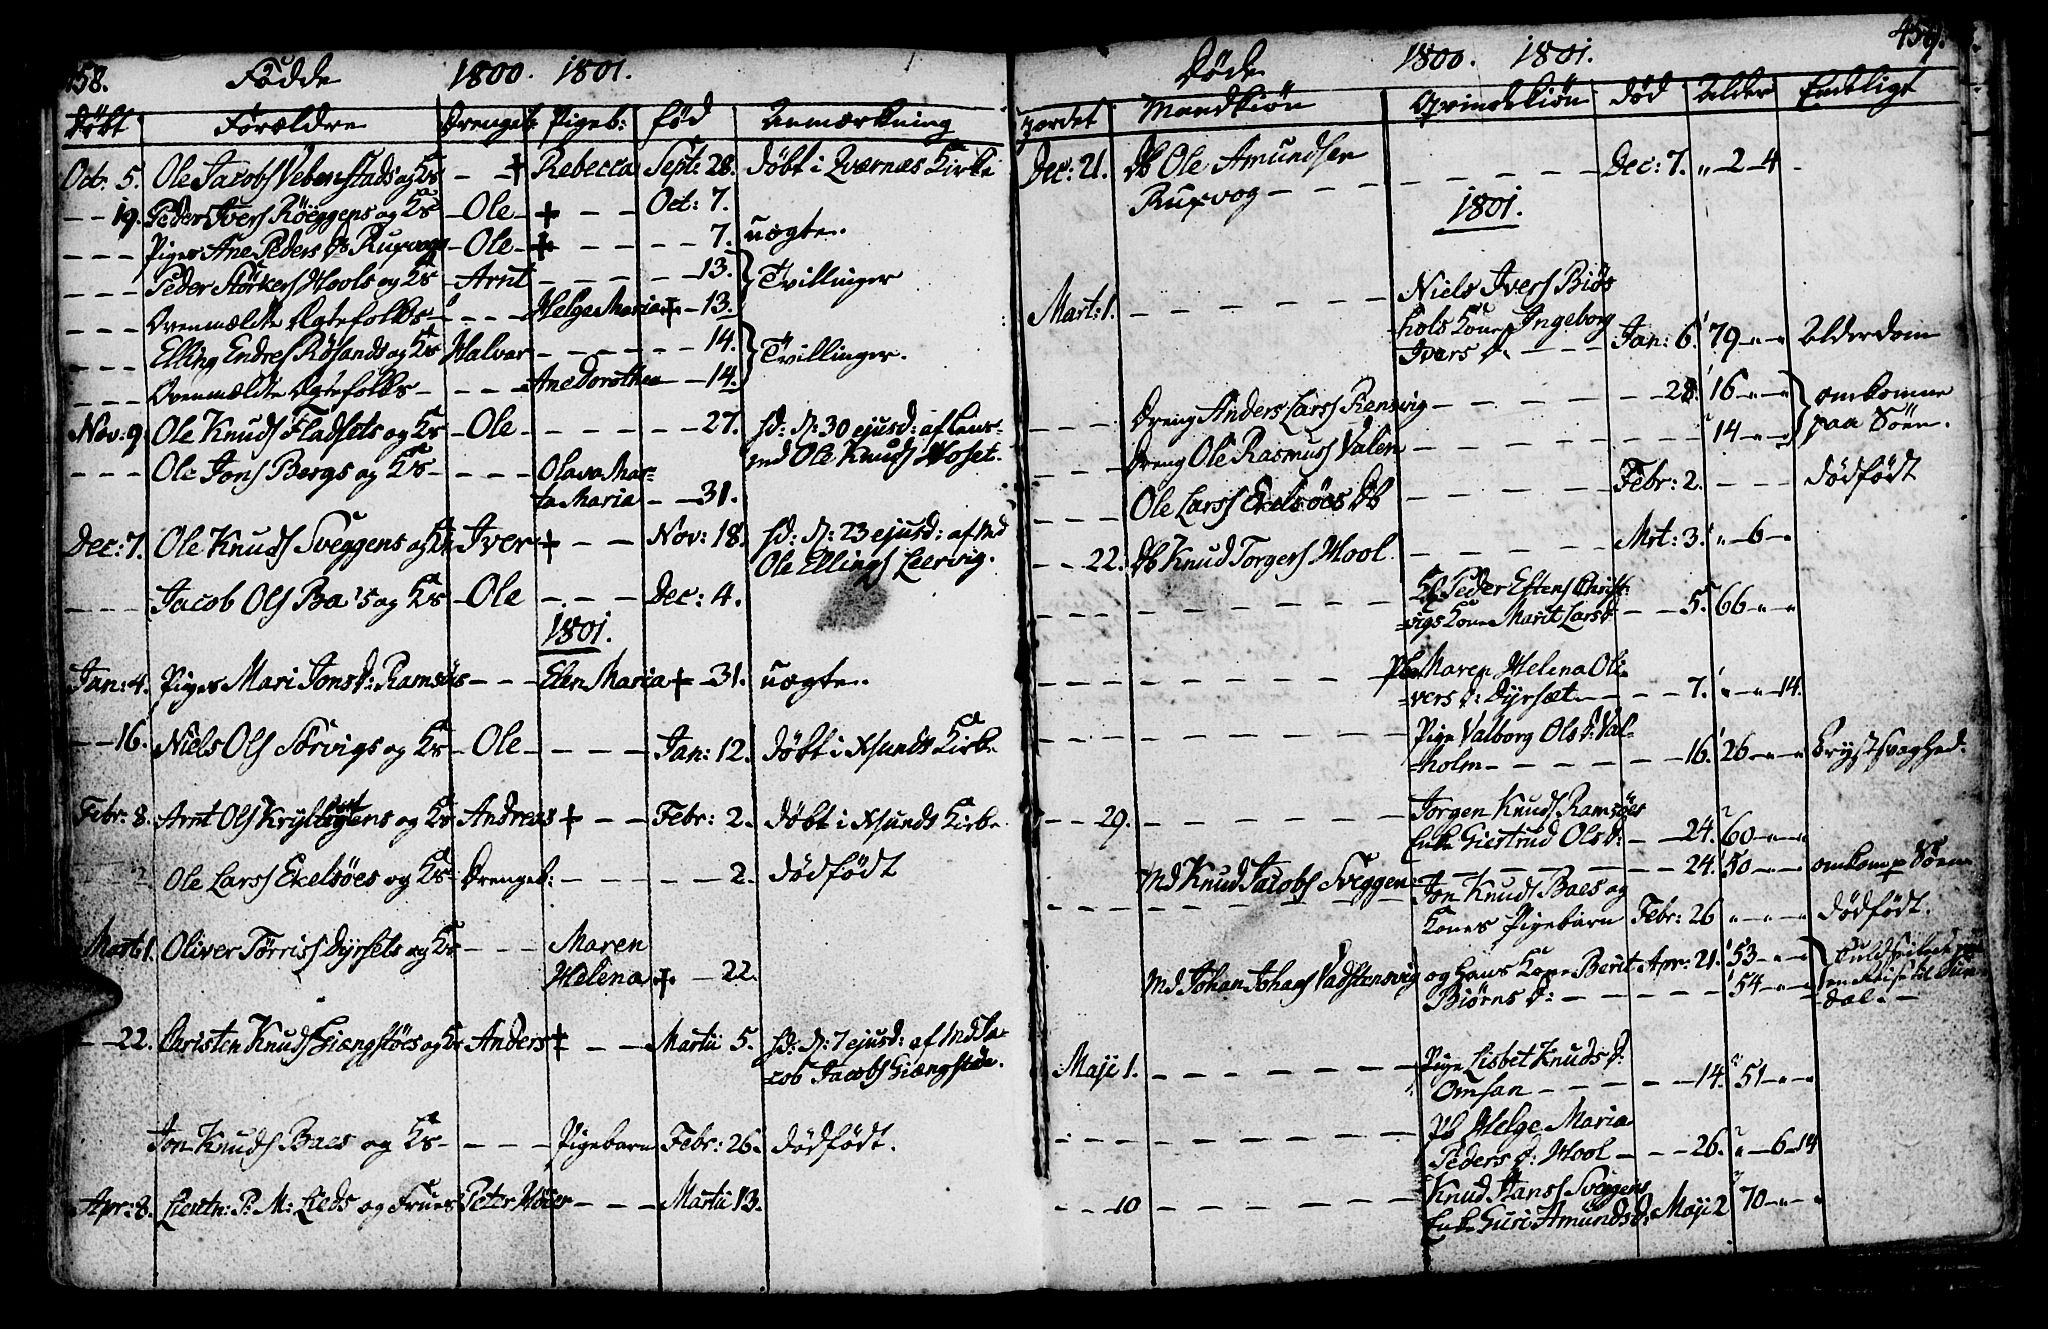 458. Födde 1800. 1801.
Döbt Forældre Drengeb: Pigeb: född Anmærkning
Oct. 5. Ole Jacobs Vebenstads og Ks - - + Rebecca Sept: 28. döbt i Qværnæs Kirke
- - 19. Peder Ivers Röeggens og Ks - Ole - + - - Oct: 7.
- - - Pigen Ane Peders D: Ruxvaag - Ole - + - - - - 7. uægte.
- - - Peder Störkers Hools og Ks - Arnt - - - - - 13. Tvillinger
- - - Ovenmældte Ægtefolks - - - - Helge Maria + - 13.
- - - Elling Endres Rösands og Ks Halvar - - - - - 14. Tvillinger.
- - - Ovenmældte Ægtefolks - - - - Ane Dorothea - - 14.
Nov: 9. Ole Knuds Fladsets og Ks - Ole - - - - - - 27. hd: D: 30 ejusd: af Lens-
md Ole Knuds Hoset.
- - - Ole Jons Bergs og Ks - - - - Olava Mar-
ta Maria - - 31.
Dec: 7. Ole Knuds Sveggens og Ks Iver + - - Nov: 18. hd: D: 23 ejusd: af Md
Ole Ellings Leervig.
- - - Jacob Ols Ba's og Ks - Ole - - - Dec: 4.
1801.
Jan: 4. Pigen Mari Jons D: Ramsöes - - - Elen Maria + - 31. uægte.
- - 16. Niels Ols Sörvigs og Ks - Ole - - - - Jan: 12. Döbt i Xsunds Kirke
Febr: 8. Arnt Ols og Ks Andreas + - - Febr: 2. Döbt i Xsunds Kirke
Ole Lars Ekelsöes og Ks - Drengeb: - - - - - 2. dödfödt
Mart: 1. Oliver Törris Dyrsets og Ks - - - Maren
Helena + - 22.
- - 22. Christen Knuds Giengstöes og Ks Anders + - - Martii 5. hd: D: 7 ejusd: af Md Ja-
cob Jacobs Giengstöe.
Jon Knuds Baes og Ks - - - - Pigebarn Febr: 26. dödfödt.
Apr: 8. Lieutn: P: M: Lieds og Frues Peter Höier - - - Martii 13.
459.
Döde 1800. 1801.
Jordet Mandkiön Qvindekiön död Alder Endeligt
Dec: 21. Db Ole Amundsen
Ruxvog - - - - - - - - - Dec: 7. " - 2 - 4 -
1801.
Mart: 1. - - - - - - Niels Ivers Biös-
hols Kone Ingeborg
Ivers D: - - - Jan: 6. 79 - " - " Alderdom
- - - Dreng Anders Lars Rensvig - - - - - - 28. 16 - " - " omkomne
- - - Dreng Ole Rasmus Valen - - - - - - 14 - " - " paa Söen.
- - - Ole Lars Ekelsöes Db - - - - - Febr: 2. - - - dödfödt
- - 22. Db Knud Torgers Hool - - - - - Mrt: 3. " - 6 - "
- - - - - - Peder Estens Christ-
vigs Kone Marit Lars D: - - 5. 66 - " - "
- - - - - - Pb Maren Helena Oli-
vers D: Dyrsæt - - - - 7. " - " - 14.
- - - - - - Pige Valborg Ols D: Val-
holm - - - - - - 16. 26 - " - " Brystsvaghed.
- - 29. - - - - - Jorgen Knuds Ramsöes
Enke Giertrud Ols D: - - 24. 60 - " - "
- - - Md Knud Jacobs Sveggen - - - - - 24. 50 - " - " omkom p Söen
- - - - - - Jon Knuds Baes og
Kones Pigebarn Febr: 26 " - " - " dödfödt.
Md Johan Johans Vadstensvig og Hans Kone Berit Apr: 21. 53 - " - " Kuldseilede paa
Biörns D: - - - - - 54 - " - " en Reise til Sun-
dal. -
Maji 1. - - - - - - Pige Lisbet Knuds D:
Omsan - - - - - 14. 51 - " - "
- - - - - - Pb Helge Maria
Peders D: Hool - - - 26. " - 6 - 14
- - 10 - - - - - - Knud Hans Sveggens
Enke Guri Amunds D: Maji 2 70 - " - "